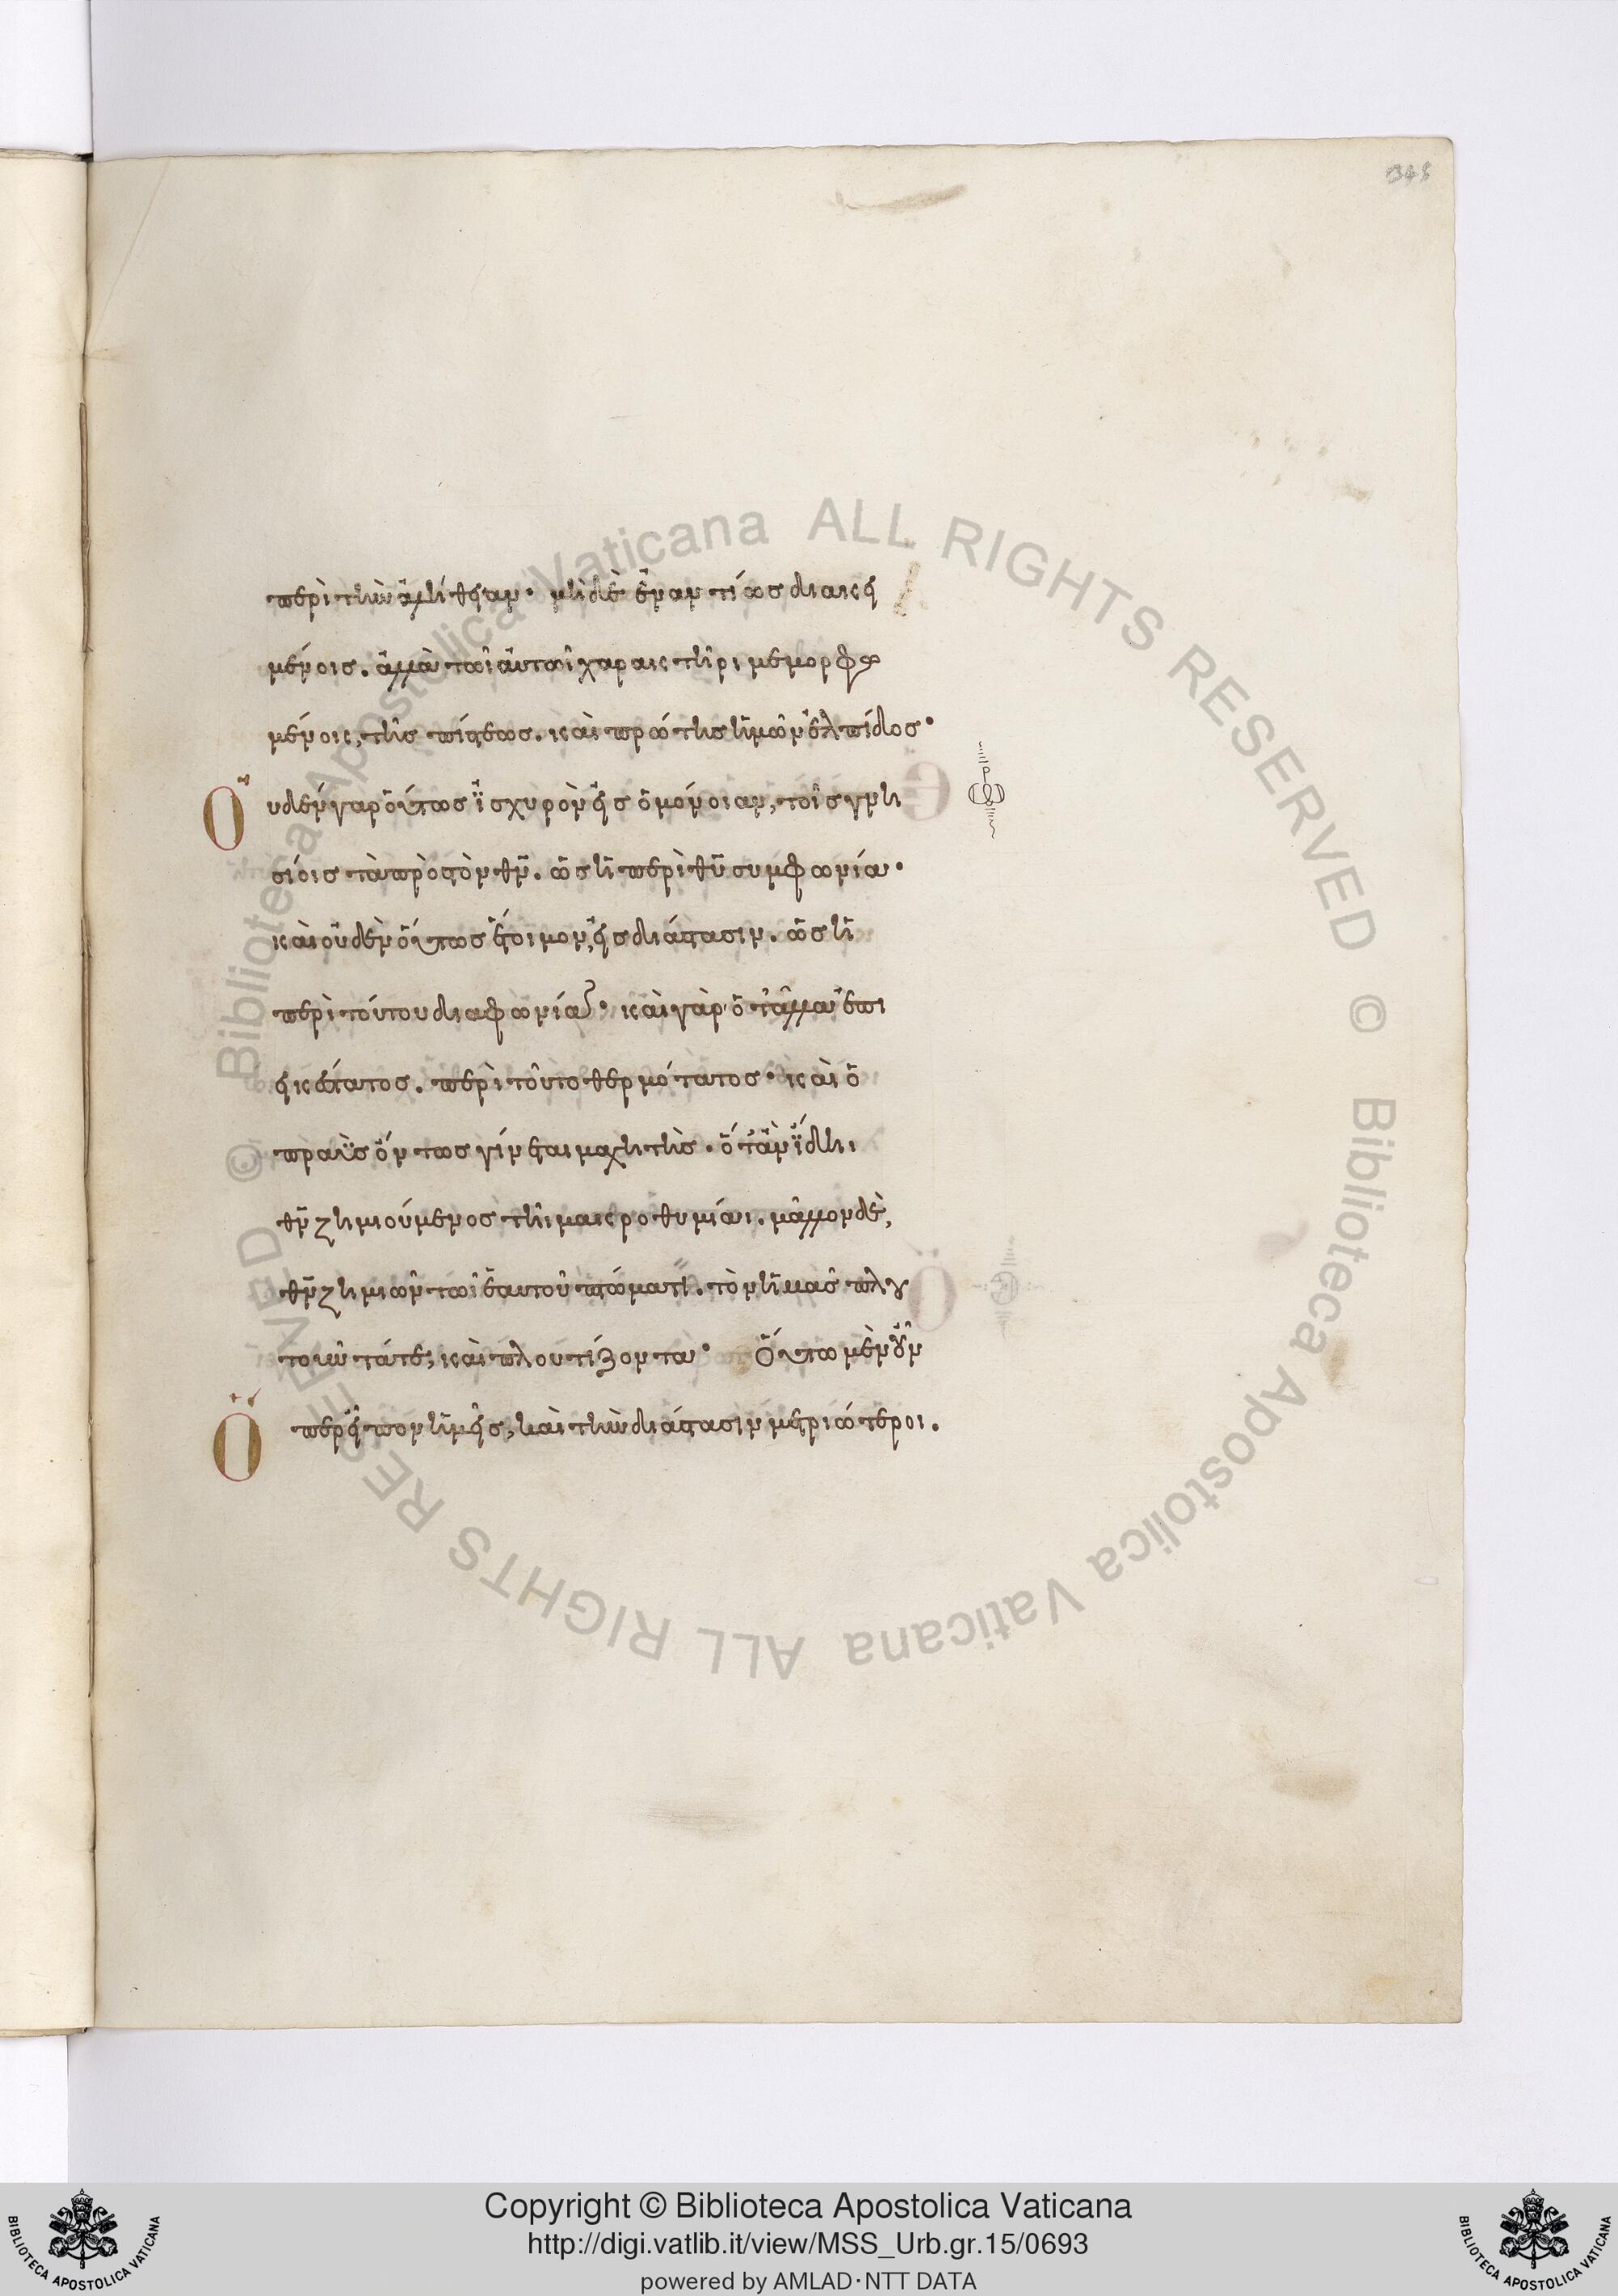 346
περὶ τὴν ἀλήθειαν· μὴ δὲ ἐναντίως διακει
μένοις. ἀλλὰ τῶι αὐτῶι χαρακτῆρι μεμορφω
μένοις, τῆς πίστεως. καὶ πρώτης ἡμῶν ἐλπίδος·
Οὐδὲν γὰρ οὕτως ἰσχυρὸν εἰς ὁμόνοιαν, τοῖς γνη
σίοις τὰ πρὸς τὸν θν̅. ὡς ἡ περὶ θυ̅ συμφωνία·
καὶ οὐδὲν οὕτως ἕτοιμον, εἰς διάστασιν. ὡς ἡ
περὶ τούτου διαφωνία· καὶ γὰρ ὁ τἄλλα ἐπι
εικέστατος. περὶ τοῦτο θερμότατος· καὶ ὁ
πραῢς ὄντως γίνεται μαχητὴς. ὅτ' ἂν ἴδηι
θν̅ ζημιούμενος τῆι μακροθυμίαι. μᾶλλον δὲ,
θν̅ ζημιῶν τῶι ἑαυτοῦ πτώματι. τὸν ἡμᾶς πλου
τοῦντά τε, καὶ πλουτίζοντα· Οὕτω μὲν οὖν
Ὅπερ εἶπον ἡμεῖς, καὶ τὴν διάστασιν μετριώτεροι.
Copyright © Biblioteca Apostolica Vaticana
http://digi.vatlib.it/view/MSS_Urb.gr.15/0693
powered by AMLAD·NTT DATA
BIBLIOTECA APOSTOLICA VATICANA
BIBLIOTECA APOSTOLICA VATICANA
© Biblioteca Apostolica Vaticana ALL RIGHTS RESERVED
© Biblioteca Apostolica Vaticana ALL RIGHTS RESERVED